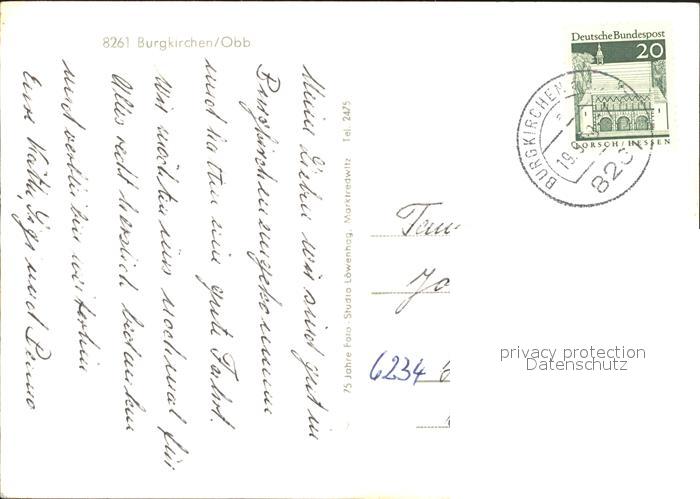 8261 Burgkirchen/Obb
Meine Lieben wir sind gut in
Burgkirchen angekommen
und hatten eine gute Fahrt.
Wir möchten uns nochmal für
Alles recht herzlich bedanken
und verbleiben weiterhin
Eure Käthi, Sigi und
75 Jahre Foto-Studio Löwenhag, Marktredwitz Tel. 2475
Deutsche Bundespost
20
LORSCH/HESSEN
BURGKIRCHEN
826
6234
privacy protection
Datenschutz